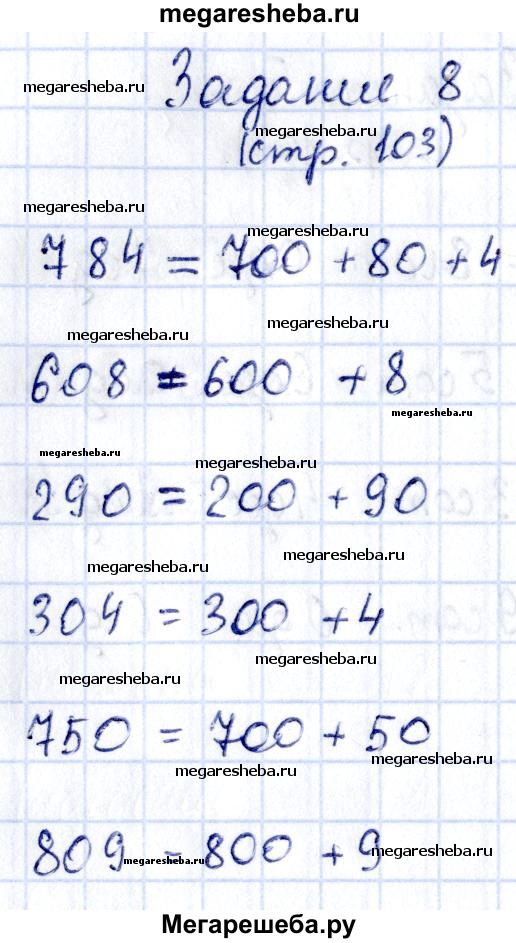 megaresheba.ru
Задание 8
megaresheba.ru
(стр. 103)
megaresheba.ru
megaresheba.ru
megaresheba.ru
784 = 700 + 80 + 4
megaresheba.ru
megaresheba.ru
608 = 600 + 8
megaresheba.ru
megaresheba.ru
megaresheba.ru
290 = 200 + 90
megaresheba.ru
megaresheba.ru
304 = 300 + 4
megaresheba.ru
megaresheba.ru
750 = 700 + 50
megaresheba.ru
megaresheba.ru
809 = 800 + 9
megaresheba.ru
megaresheba.ru
Мегарешеба.ру